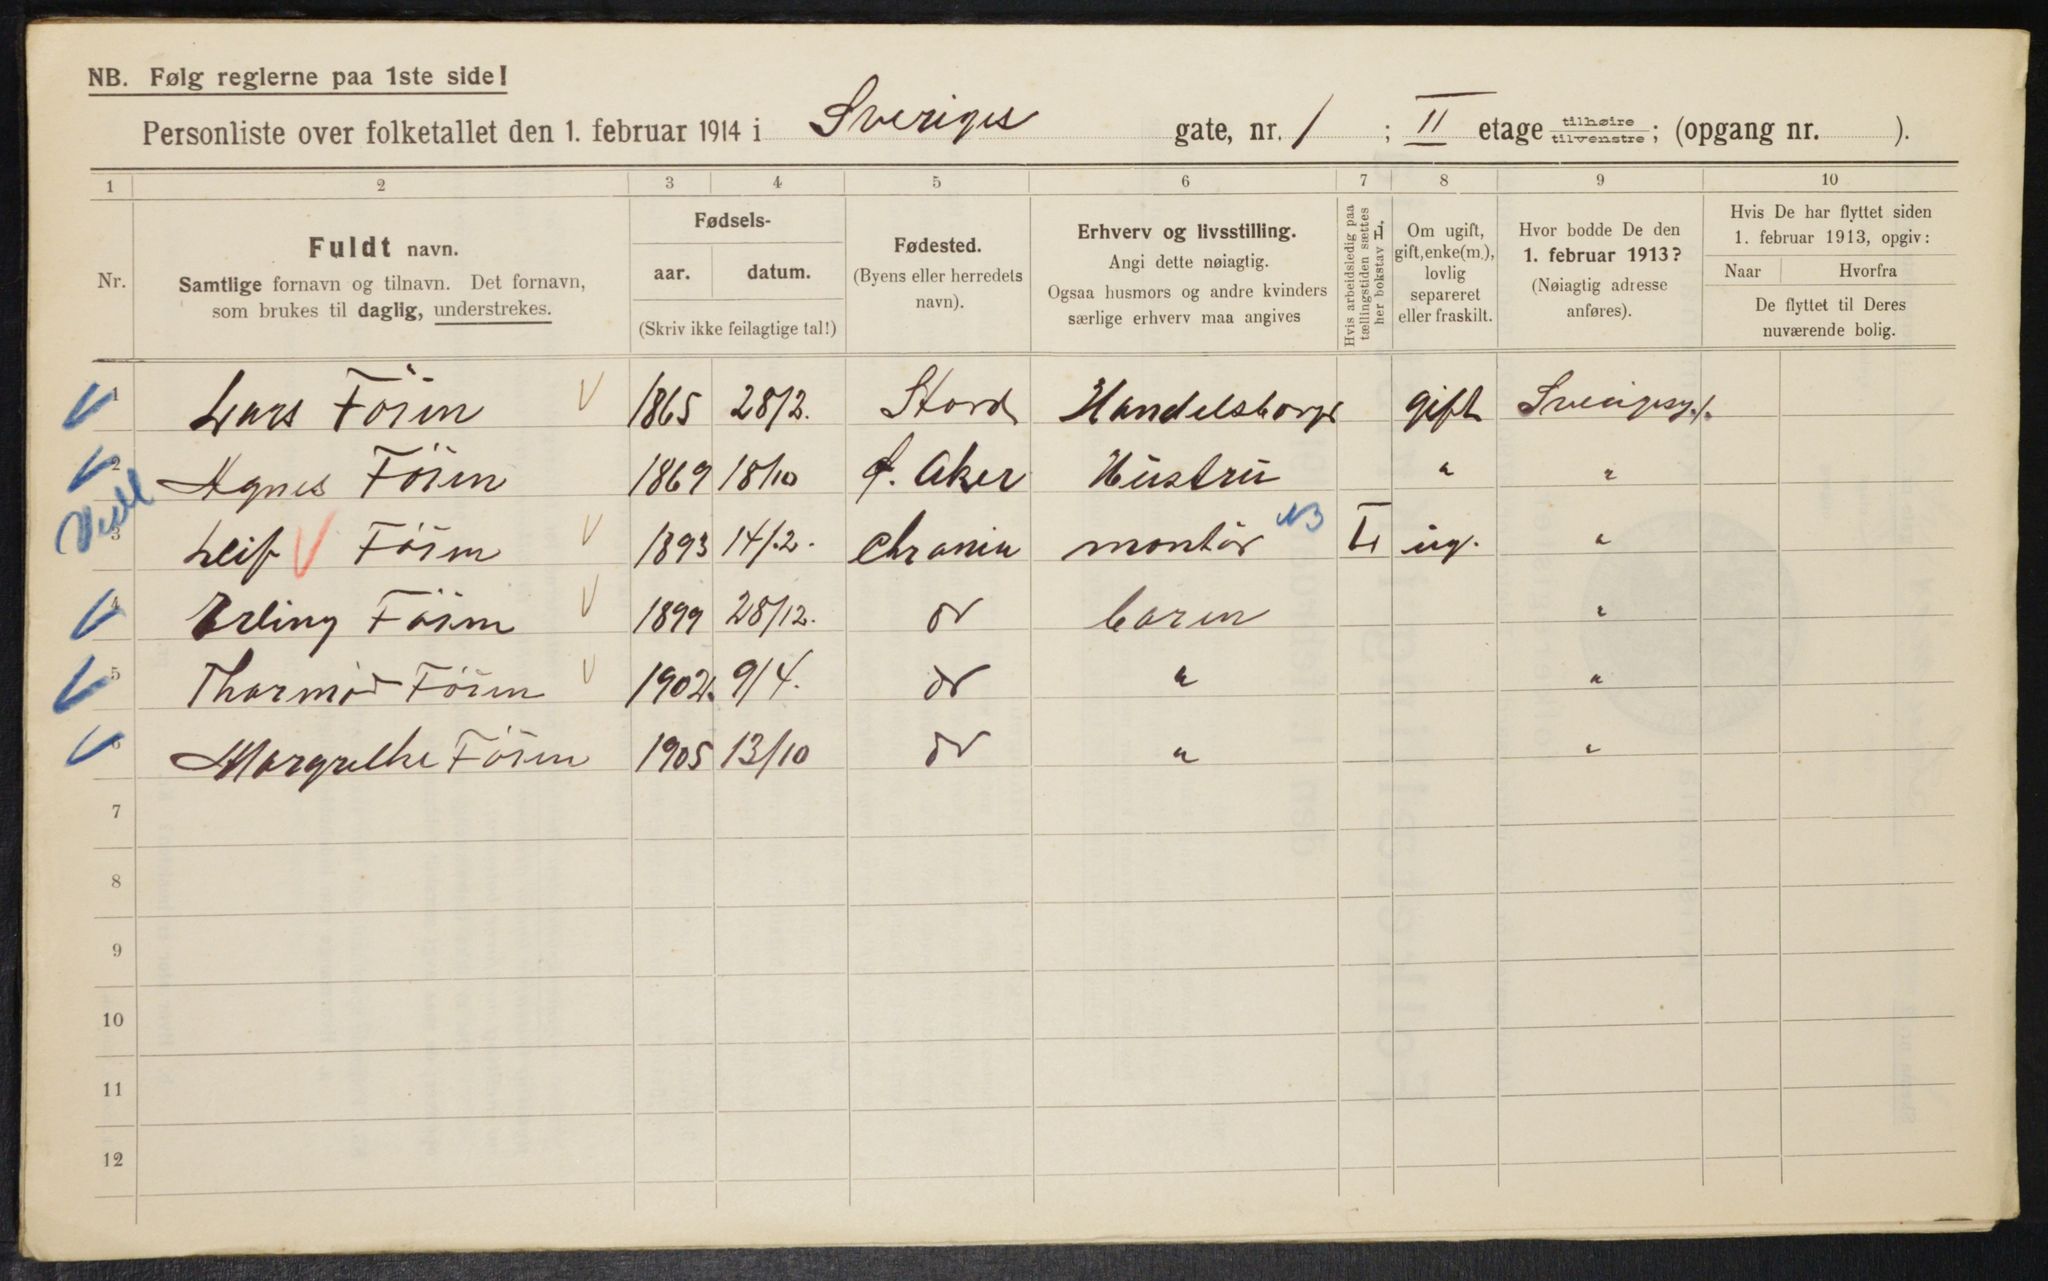 NB. Følg reglerne paa 1ste side!
Personliste over folketallet den 1. februar 1914 i Sveriges gate, nr. 1 ; II etage tilhøire/tilvenstre; (opgang nr. ).
1 2 3 4 5 6 7 8 9 10
Nr.
Fuldt navn.
Samtlige fornavn og tilnavn. Det fornavn,
som brukes til daglig, understrekes.
Fødsels-
aar. datum.
(Skriv ikke feilagtige tal!)
Fødested.
(Byens eller herredets
navn).
Erhverv og livsstilling.
Angi dette nøiagtig.
Ogsaa husmors og andre kvinders
særlige erhverv maa angives
Hvis arbeidsledig paa
tællingstiden sættes
her bokstav L.
Om ugift,
gift, enke(m.),
lovlig
separeret
eller fraskilt.
Hvor bodde De den
1. februar 1913?
(Nøiagtig adresse
anføres).
Hvis De har flyttet siden
1. februar 1913, opgiv:
Naar Hvorfra
De flyttet til Deres
nuværende bolig.
1 Lars Föien V 1865 28/2. Stord Handelsborger gift Sverigesg. 1.
2 Agnes Föien 1869 18/10 Ø. Aker Hustru " "
3 Leif V Föien V 1893 14/2. Chrania montör NB L ug. "
4 Erling Föien V 1899 28/12. do barn "
5 Thormod Föien V 1902. 9/4. do " "
6 Margrethe Föien 1905 13/10 do " "
7
8
9
10
11
12